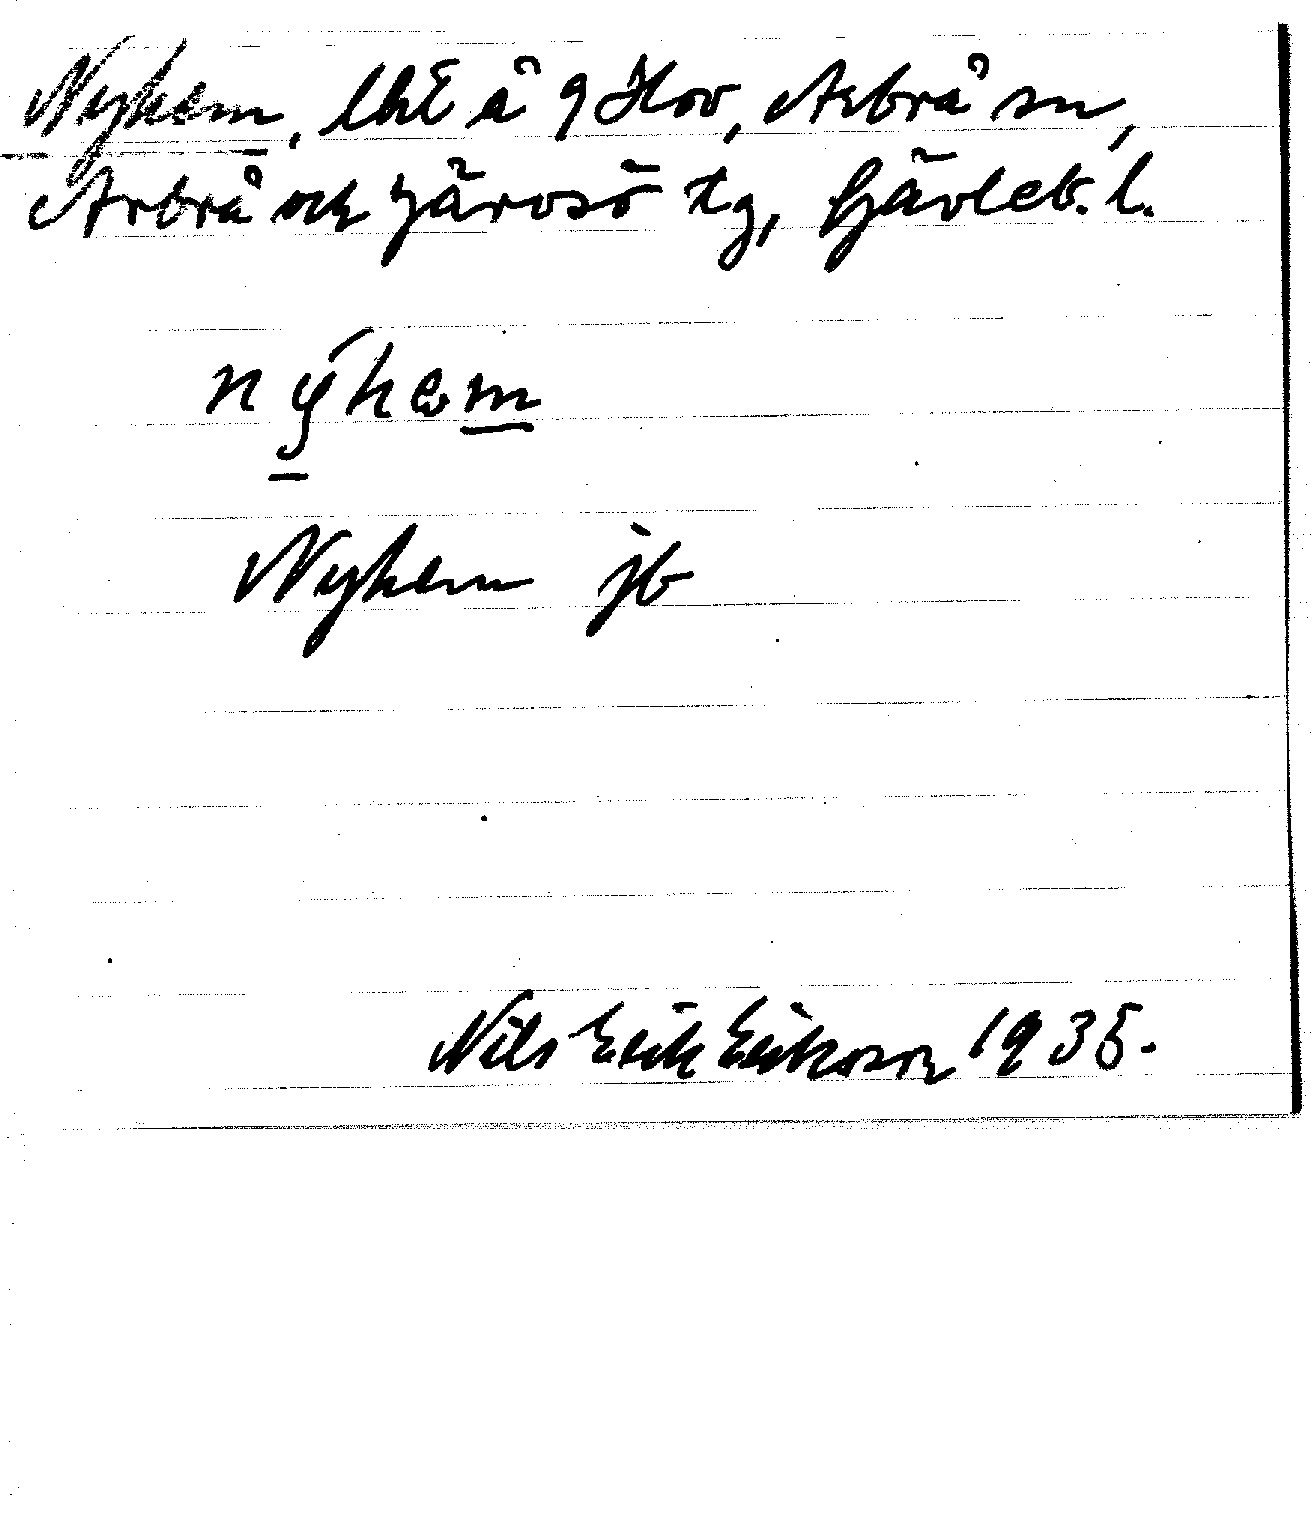 Nyhem, lht å q Hov, Arbrå sn,
Arbrå och Järvsö tg, Gävleb. l.
nýhem
Nyhem jb
Nils Erik Erikson 1935.